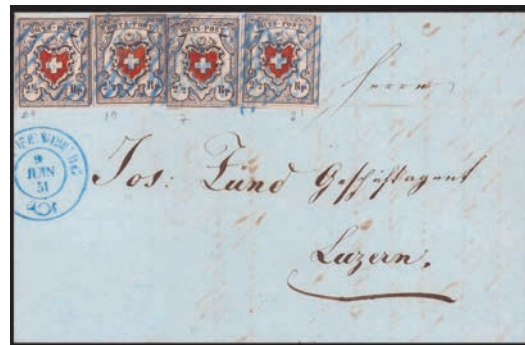 ORTS-POST ORTS-POST ORTS-POST ORTS-POST
2½ Rp 2½ Rp 2½ Rp 2½ Rp
19 7
Herrn
9
JUIN
51
Jos: Zünd Geschäftagent
Luzern.